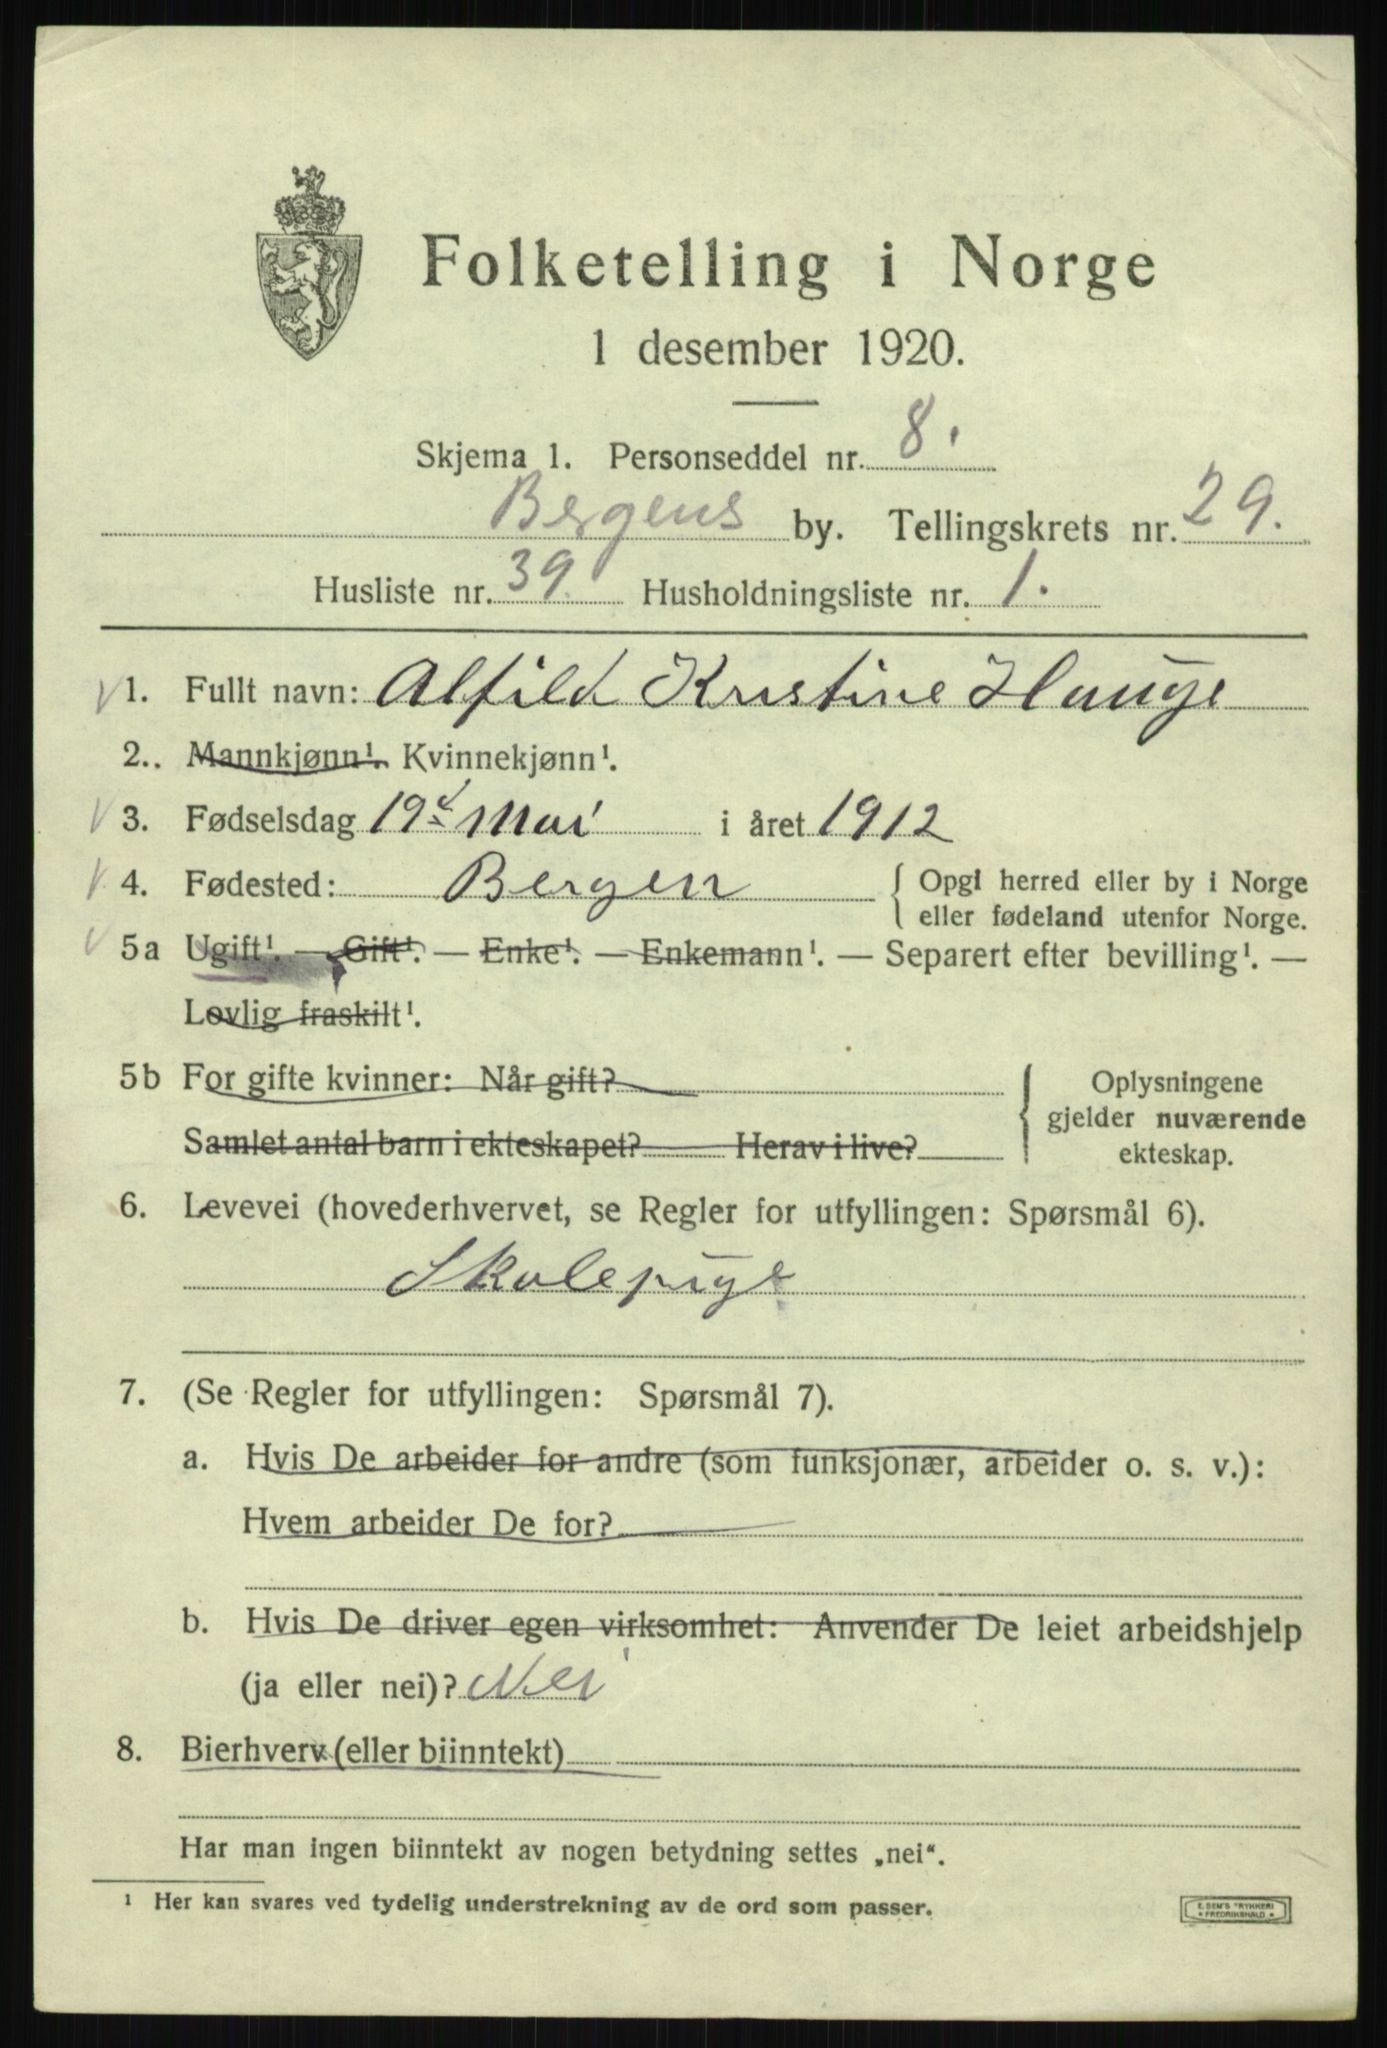 Folketelling i Norge
1 desember 1920.
Skjema 1. Personseddel nr. 8.
Bergens by. Tellingskrets nr. 29.
Husliste nr. 39 Husholdningsliste nr. 1.
1. Fullt navn: Alfild Kristine Hauge
2.. Mannkjønn¹. Kvinnekjønn¹.
3. Fødselsdag 19d Mai i året 1912
4. Fødested: Bergen { Opgi herred eller by i Norge
eller fødeland utenfor Norge.
5a Ugift¹. — Gift¹. — Enke¹. — Enkemann¹. — Separert efter bevilling¹. —
Lovlig fraskilt¹.
5b For gifte kvinner: Når gift?
Samlet antal barn i ekteskapet? Herav i live?
Oplysningene
gjelder nuværende
ekteskap.
6. Levevei (hovederhvervet, se Regler for utfyllingen: Spørsmål 6).
Skolepige
7. (Se Regler for utfyllingen: Spørsmål 7).
a. Hvis De arbeider for andre (som funksjonær, arbeider o. s. v.):
Hvem arbeider De for?
b. Hvis De driver egen virksomhet: Anvender De leiet arbeidshjelp
(ja eller nei)? Nei
8. Bierhverv (eller biinntekt)
Har man ingen biinntekt av nogen betydning settes „nei“.
¹ Her kan svares ved tydelig understrekning av de ord som passer.
E. SEM'S TRYKKERI
• FREDRIKSHALD •